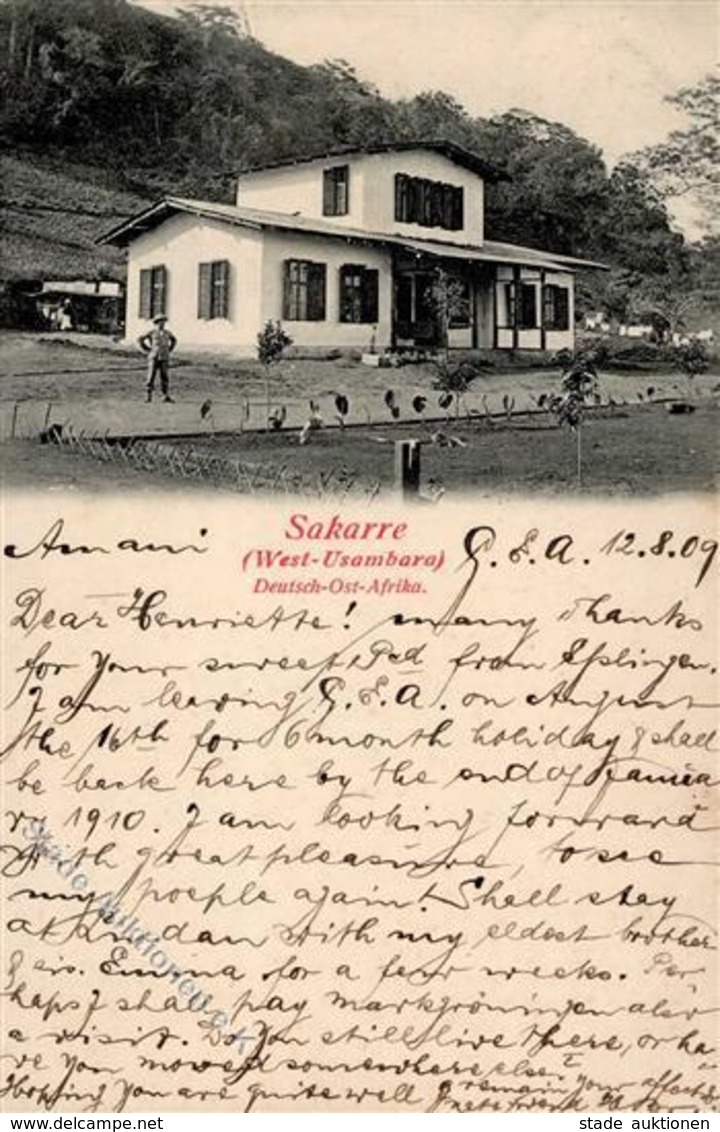 Sakarre
(West-Usambara)
Deutsch-Ost-Afrika.
Amani G.E.A. 12.8.09
Dear Henriette! many Thanks
for your sweet P-cd from Esslingen.
I am leaving G.E.A. on August
the 16th for 6 month holiday & shall
be back here by the end of Februa
ry 1910. I am looking forward
with great pleasure, to see
my poeple again! Shall stay
at with my eldest brother
& sis. Emma for a few weeks. Per
haps I shall pay Markgröningen also
a visit. Do you still live there, or ha-
ve you moved somewhere else?
Hopping you are quite well I remain your affect.
friend
Stade Auktionen
stade auktionen